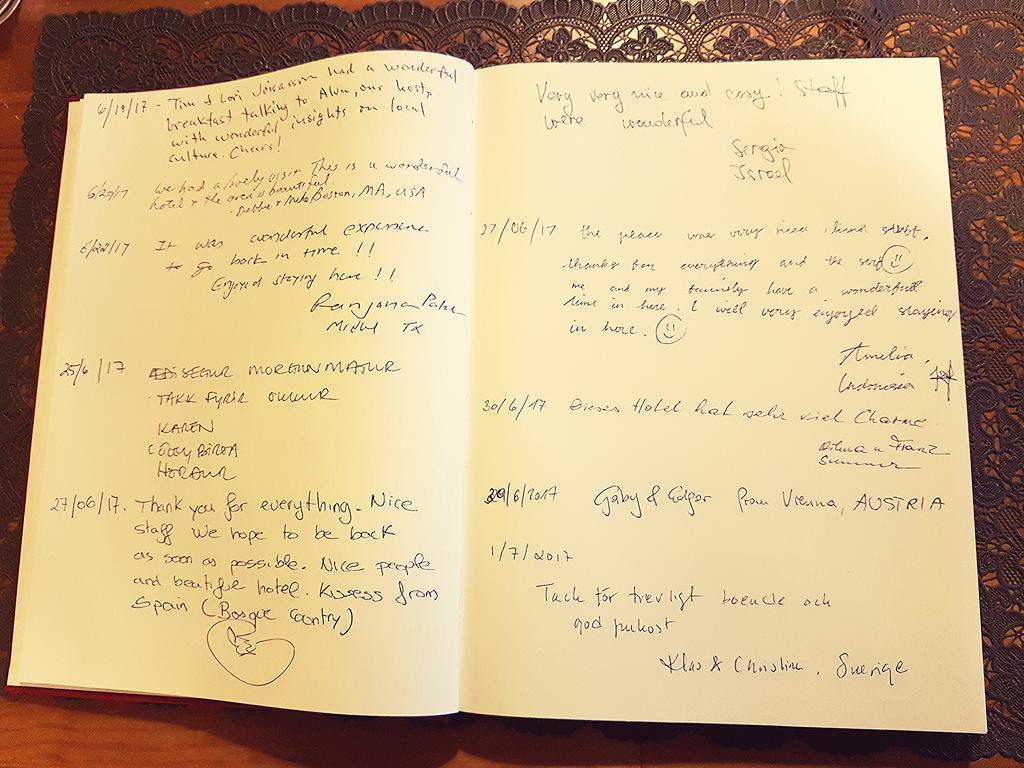 6/19/17 - Tim & Lori had a wonderful
breakfast talking to our host,
with wonderful insights on local
culture. Cheers!
6/20/17 We had a lovely visit. This is a wonderful
hotel & the area is beautiful
Boston, MA, USA
6/22/17 It was wonderful experience
to go back in time!!
Enjoyed staying here!!
Ranjana Patel
TX
25/6/17
TAKK FYRIR
KAREN
27/06/17. Thank you for everything. Nice
staff we hope to be back
as soon as possible. Nice people
and beatiful hotel. Kissess from
Spain (Basque Country)
Very very nice and cosy! Staff
were wonderful
Sergio
Israel
27/06/17 the was very nice, kind
thanks for everything and the
me and my have a wonderfull
time in here. I will very enjoyed staying
in here.
Amelia,
Indonesia
30/6/17 Dieses Hotel hat sehr viel Charme
u Franz
29/6/2017 Gaby & Edgar from Vienna, AUSTRIA
1/7/2017
Tack för trevligt boende och
god frukost
Klas & Christina, Sverige